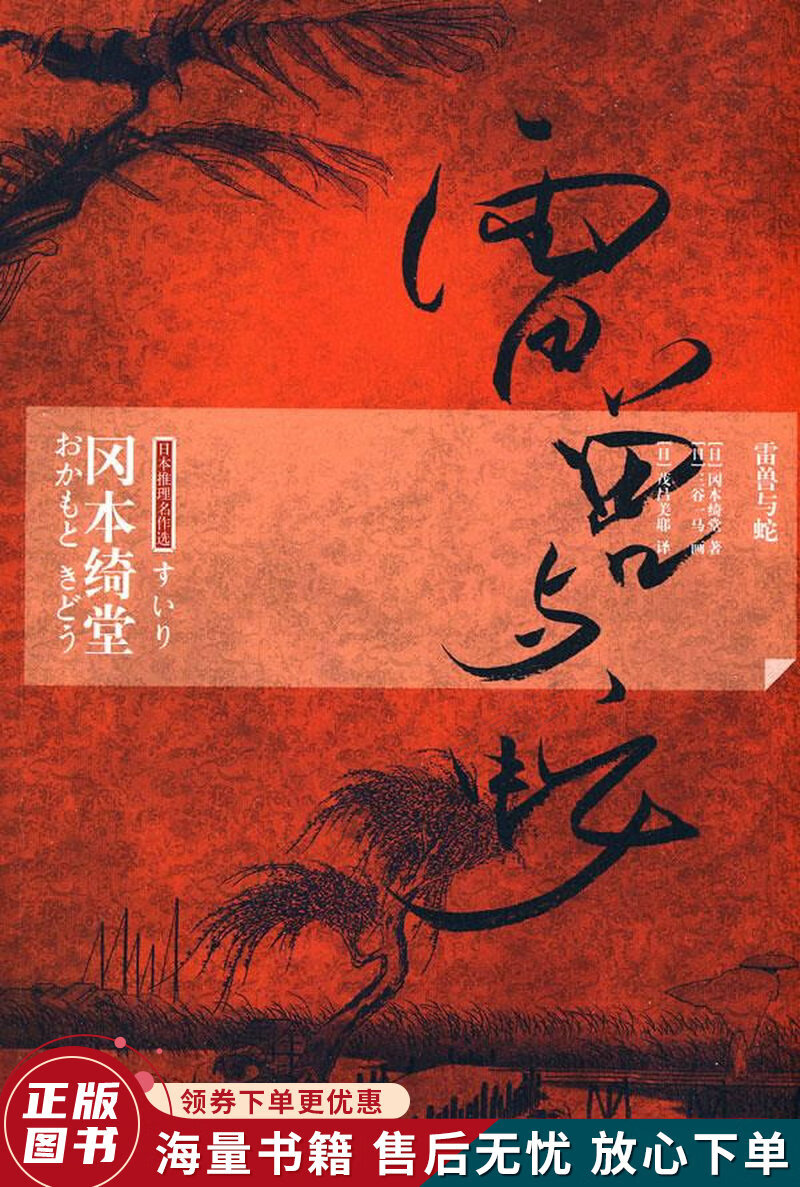 雷兽与蛇
雷兽与蛇
[日] 冈本绮堂 著
[日] 三谷一马 画
[日] 茂吕美耶 译
日本推理名作选
すいり
冈本绮堂
おかもと きどう
正版
图书
领券下单更优惠
海量书籍 售后无忧 放心下单